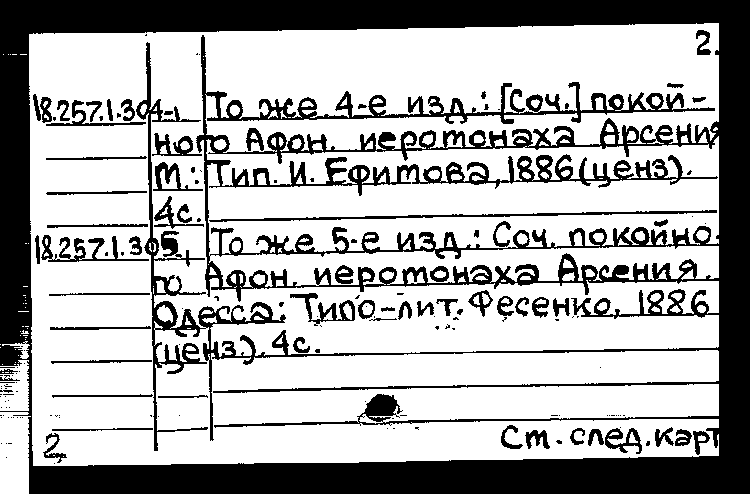 2.
18.257.1.304-1 То же. 4-е изд.: [Соч.] покой-
ного Афон. иеромонаха Арсения
М.: Тип. И. Ефимова, 1886 (ценз).
4с.
18.257.1.305, То же. 5-е изд.: Соч. покойно-
го Афон. иеромонаха Арсения.
Одесса: Типо-лит. Фесенко, 1886
(ценз.). 4с.
См. след. карт
2